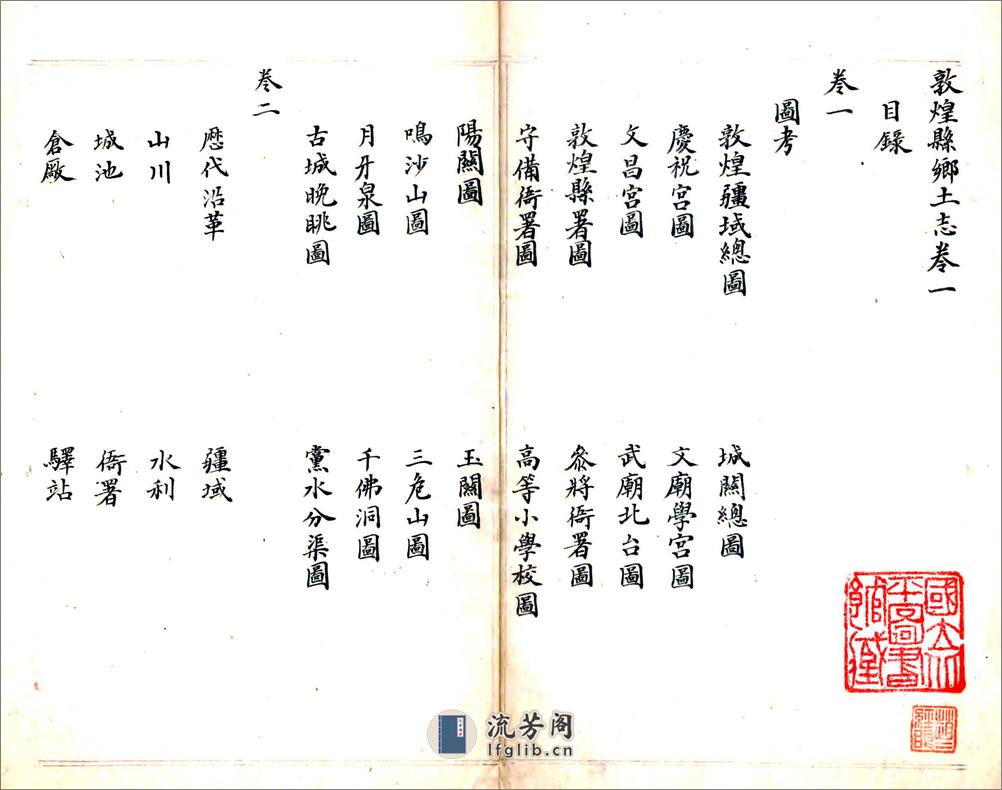 敦煌縣鄉土志卷一
目錄
卷一
圖考
敦煌疆域總圖
城關總圖
慶祝宮圖
文廟學宮圖
文昌宮圖
武廟北台圖
敦煌縣署圖
叅將衙署圖
守備衙署圖
高等小學校圖
陽關圖
玉關圖
鳴沙山圖
三危山圖
月牙泉圖
千佛洞圖
古城晚眺圖
黨水分渠圖
卷二
歷代沿革
疆域
山川
水利
城池
衙署
倉廒
驛站
國立北平圖書館藏
流芳阁
lfglib.cn